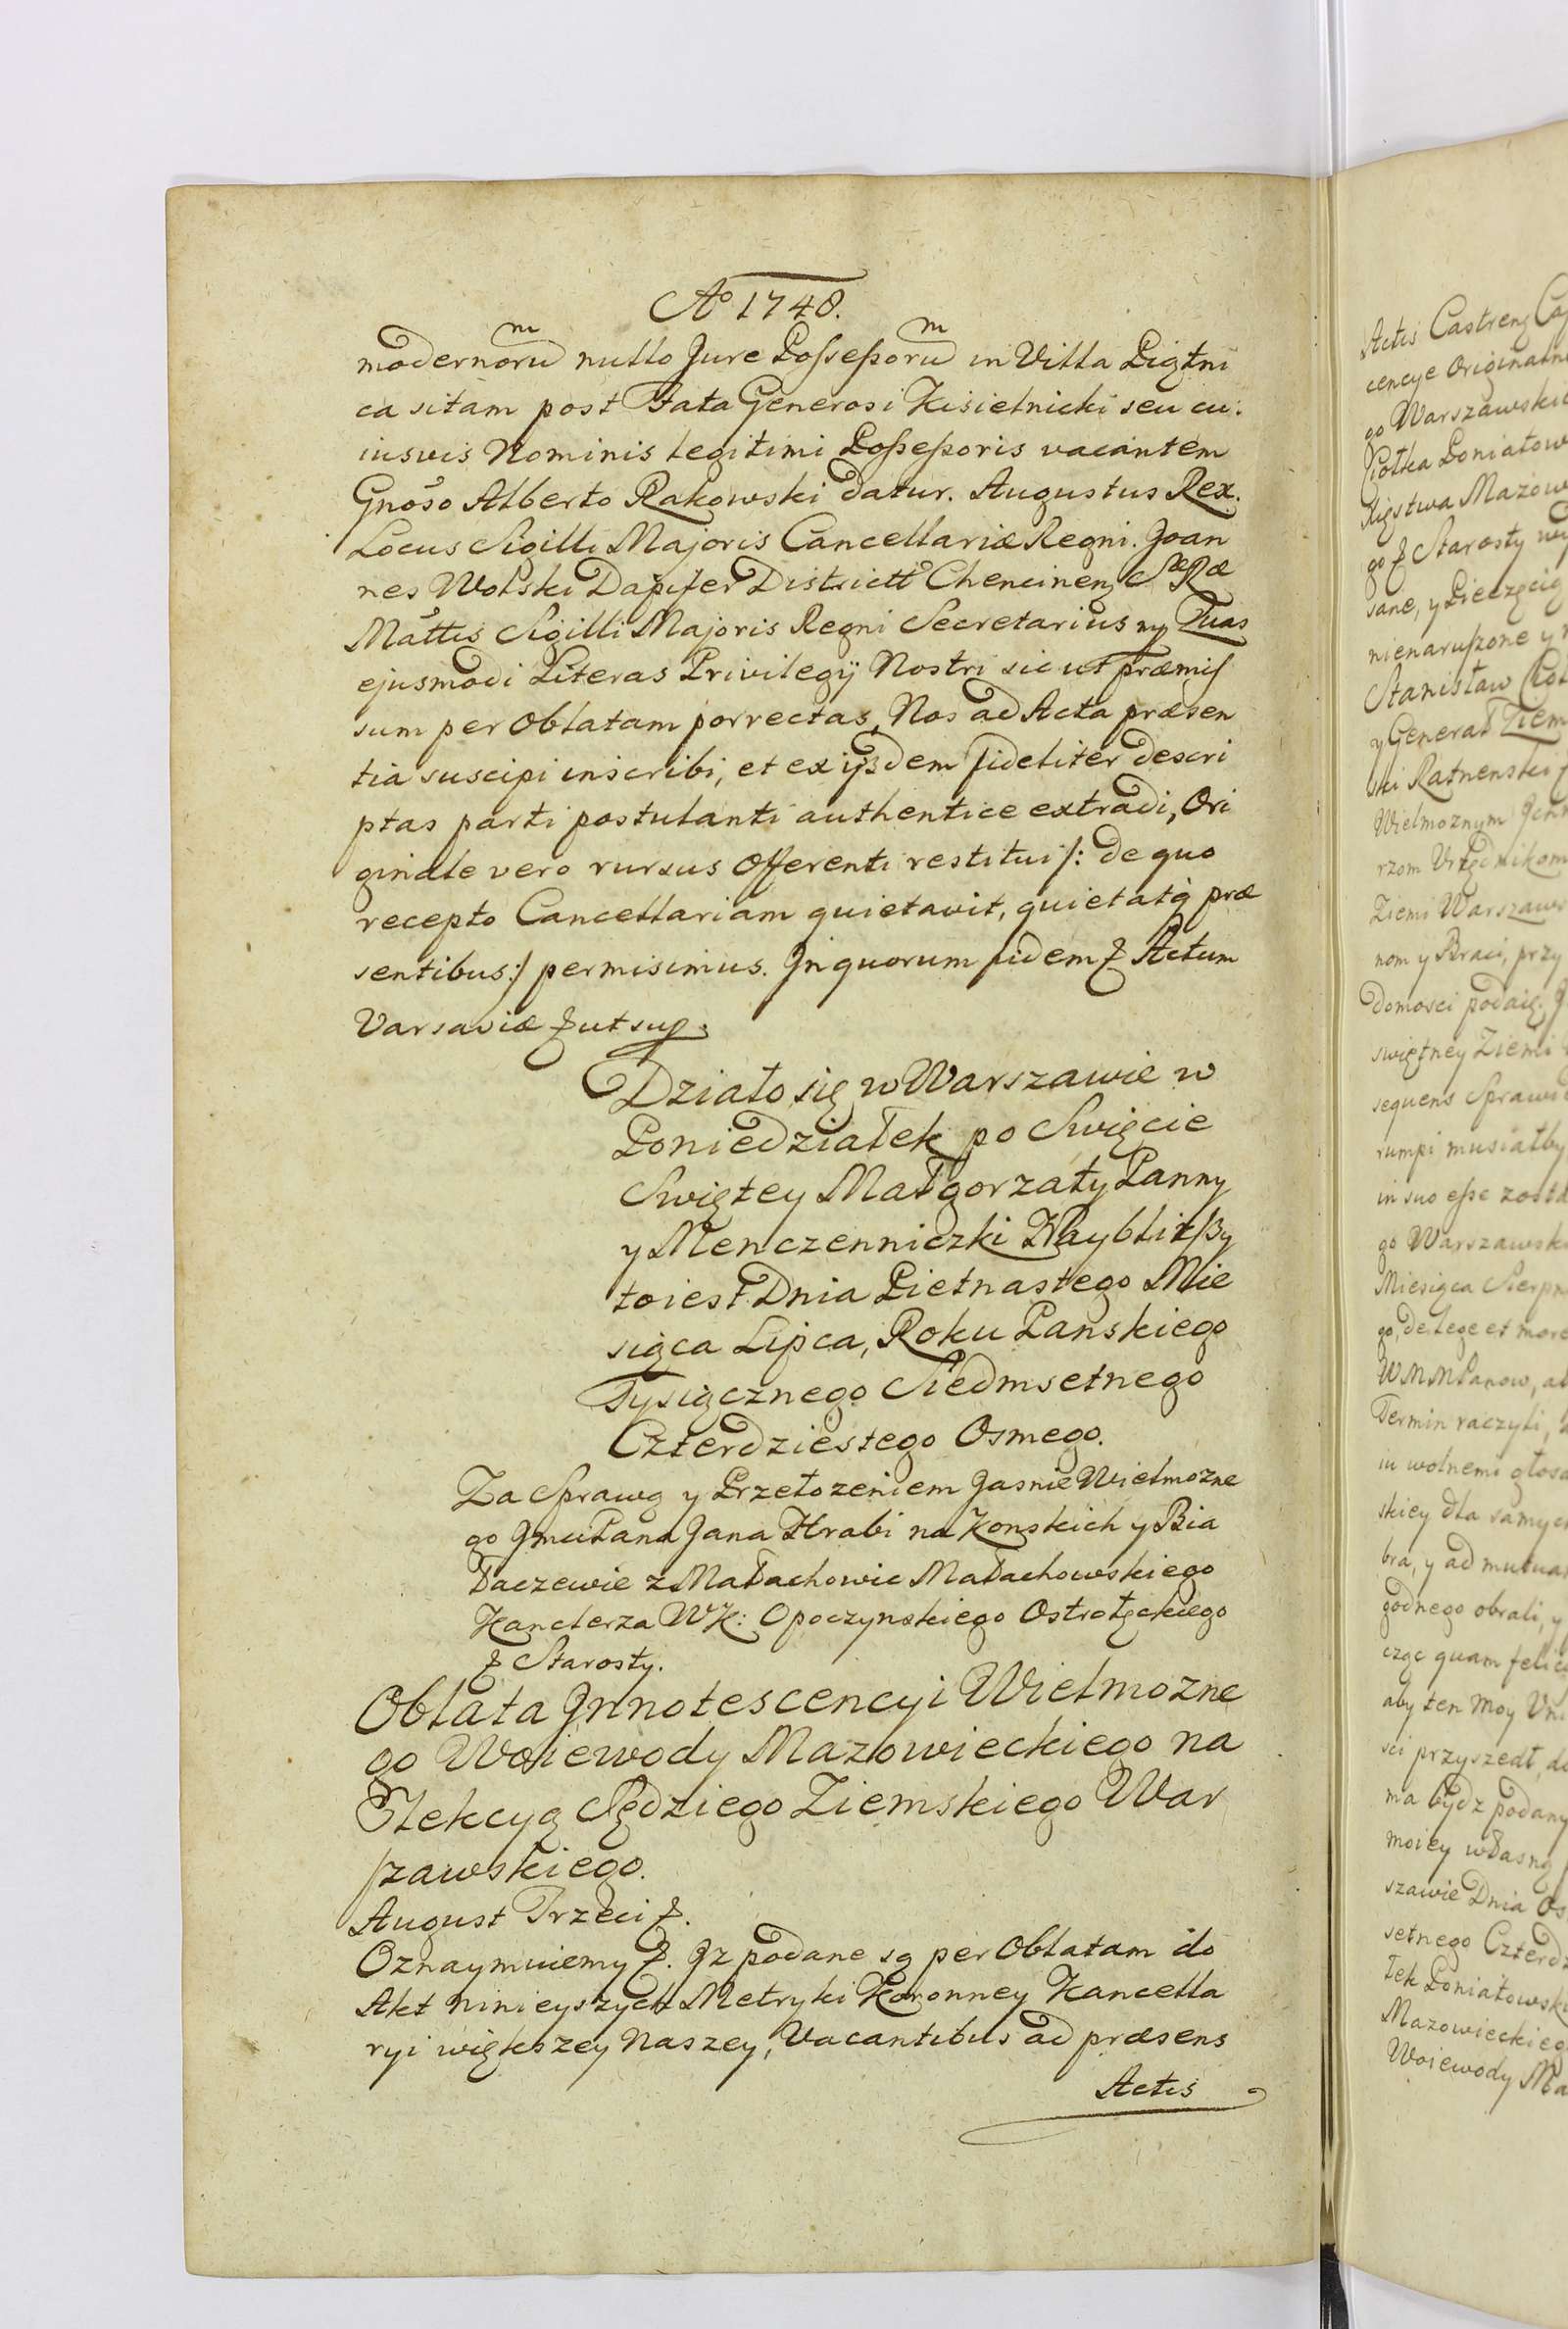 Ao 1748.
modernorum nullo Jure Possessorum in Villa Piątni
ca sitam post Fata Generosi Kisielnicki seu cu:
iusvis Nominis legitimi Possessoris vacantem
Gnoso Alberto Rakowski datur. Augustus Rex.
Locus Sigilli Majoris Cancellariæ Regni. Joan
nes Wolski Dapifer District Chencinen SRæ
Mattis Sigilli Majoris Regni Secretarius mp Quas
ejusmodi Literas Privilegij Nostri sic ut præmis
sum per Oblatam porrectas, Nos ad Acta præsen
tia suscipi inscribi, et ex ijsdem fideliter descri
ptas parti postulanti authentice extradi, Ori
ginale vero rursus Offerenti restitui /: de quo
recepto Cancellariam quietavit, quietatq præ
sentibus:/ permisimus. In quorum fidem & Actum
Varsaviæ & ut sup.
Działo się w Warszawie w
Poniedziałek po Swięcie
Swiętey Małgorzaty Panny
y Menczenniczki Naybliższy
to iest Dnia Pietnastego Mie
siąca Lipca, Roku Panskiego
Tysiącznego Siedmsetnego
Czterdziestego Osmego.
Za Sprawą y Przełozeniem Jasnie Wielmozne
go Jmci Pana Jana Hrabi na Konskich y Bia
łaczewie z Małachowic Małachowskiego
Kanclerza WK: Opoczynskiego Ostrołęckiego
& Starosty.
Oblata Jnnotescencyi Wielmozne
go Woiewody Mazowieckiego na
Elekcyą Sędziego Ziemskiego War
szawskiego.
August Trzeci &.
Oznaymuiemy &. Jz podane są per Oblatam do
Akt ninieyszych Metryki Koronney Kancella
ryi większey Naszey, Vacantibus ad præsens
Actis
Actis Castren
cencye Originaln
go Warszawski
Poniatow
Xięstwa Mazow
go & Starosty
sane, y Pieczęcią
nienaruszone y
Stanisław
y Generał Ziem
ski Ratnenski
Wielmoznym
rzom Urzędnikom
Ziemi Warszaw
nom y Braci, przy
domosci podaię.
swiętney Ziemi
sequens Sprawi
rumpi musiałby
in suo esse zosta
go Warszawsk
Miesiąca Sierpn
go, de lege et more
WMMPanow, a
Termin raczyli,
iu wolnemi głosa
skiey dla samyc
bra, y ad mutua
godnego obrali, y
cząc quam felic
aby ten moy Uni
sci przyszedł, do
ma bydz podany
moiey własną
szawie Dnia Os
setnego Czterdz
łek Poniatowsk
Mazowieckieg
Woiewody Ma